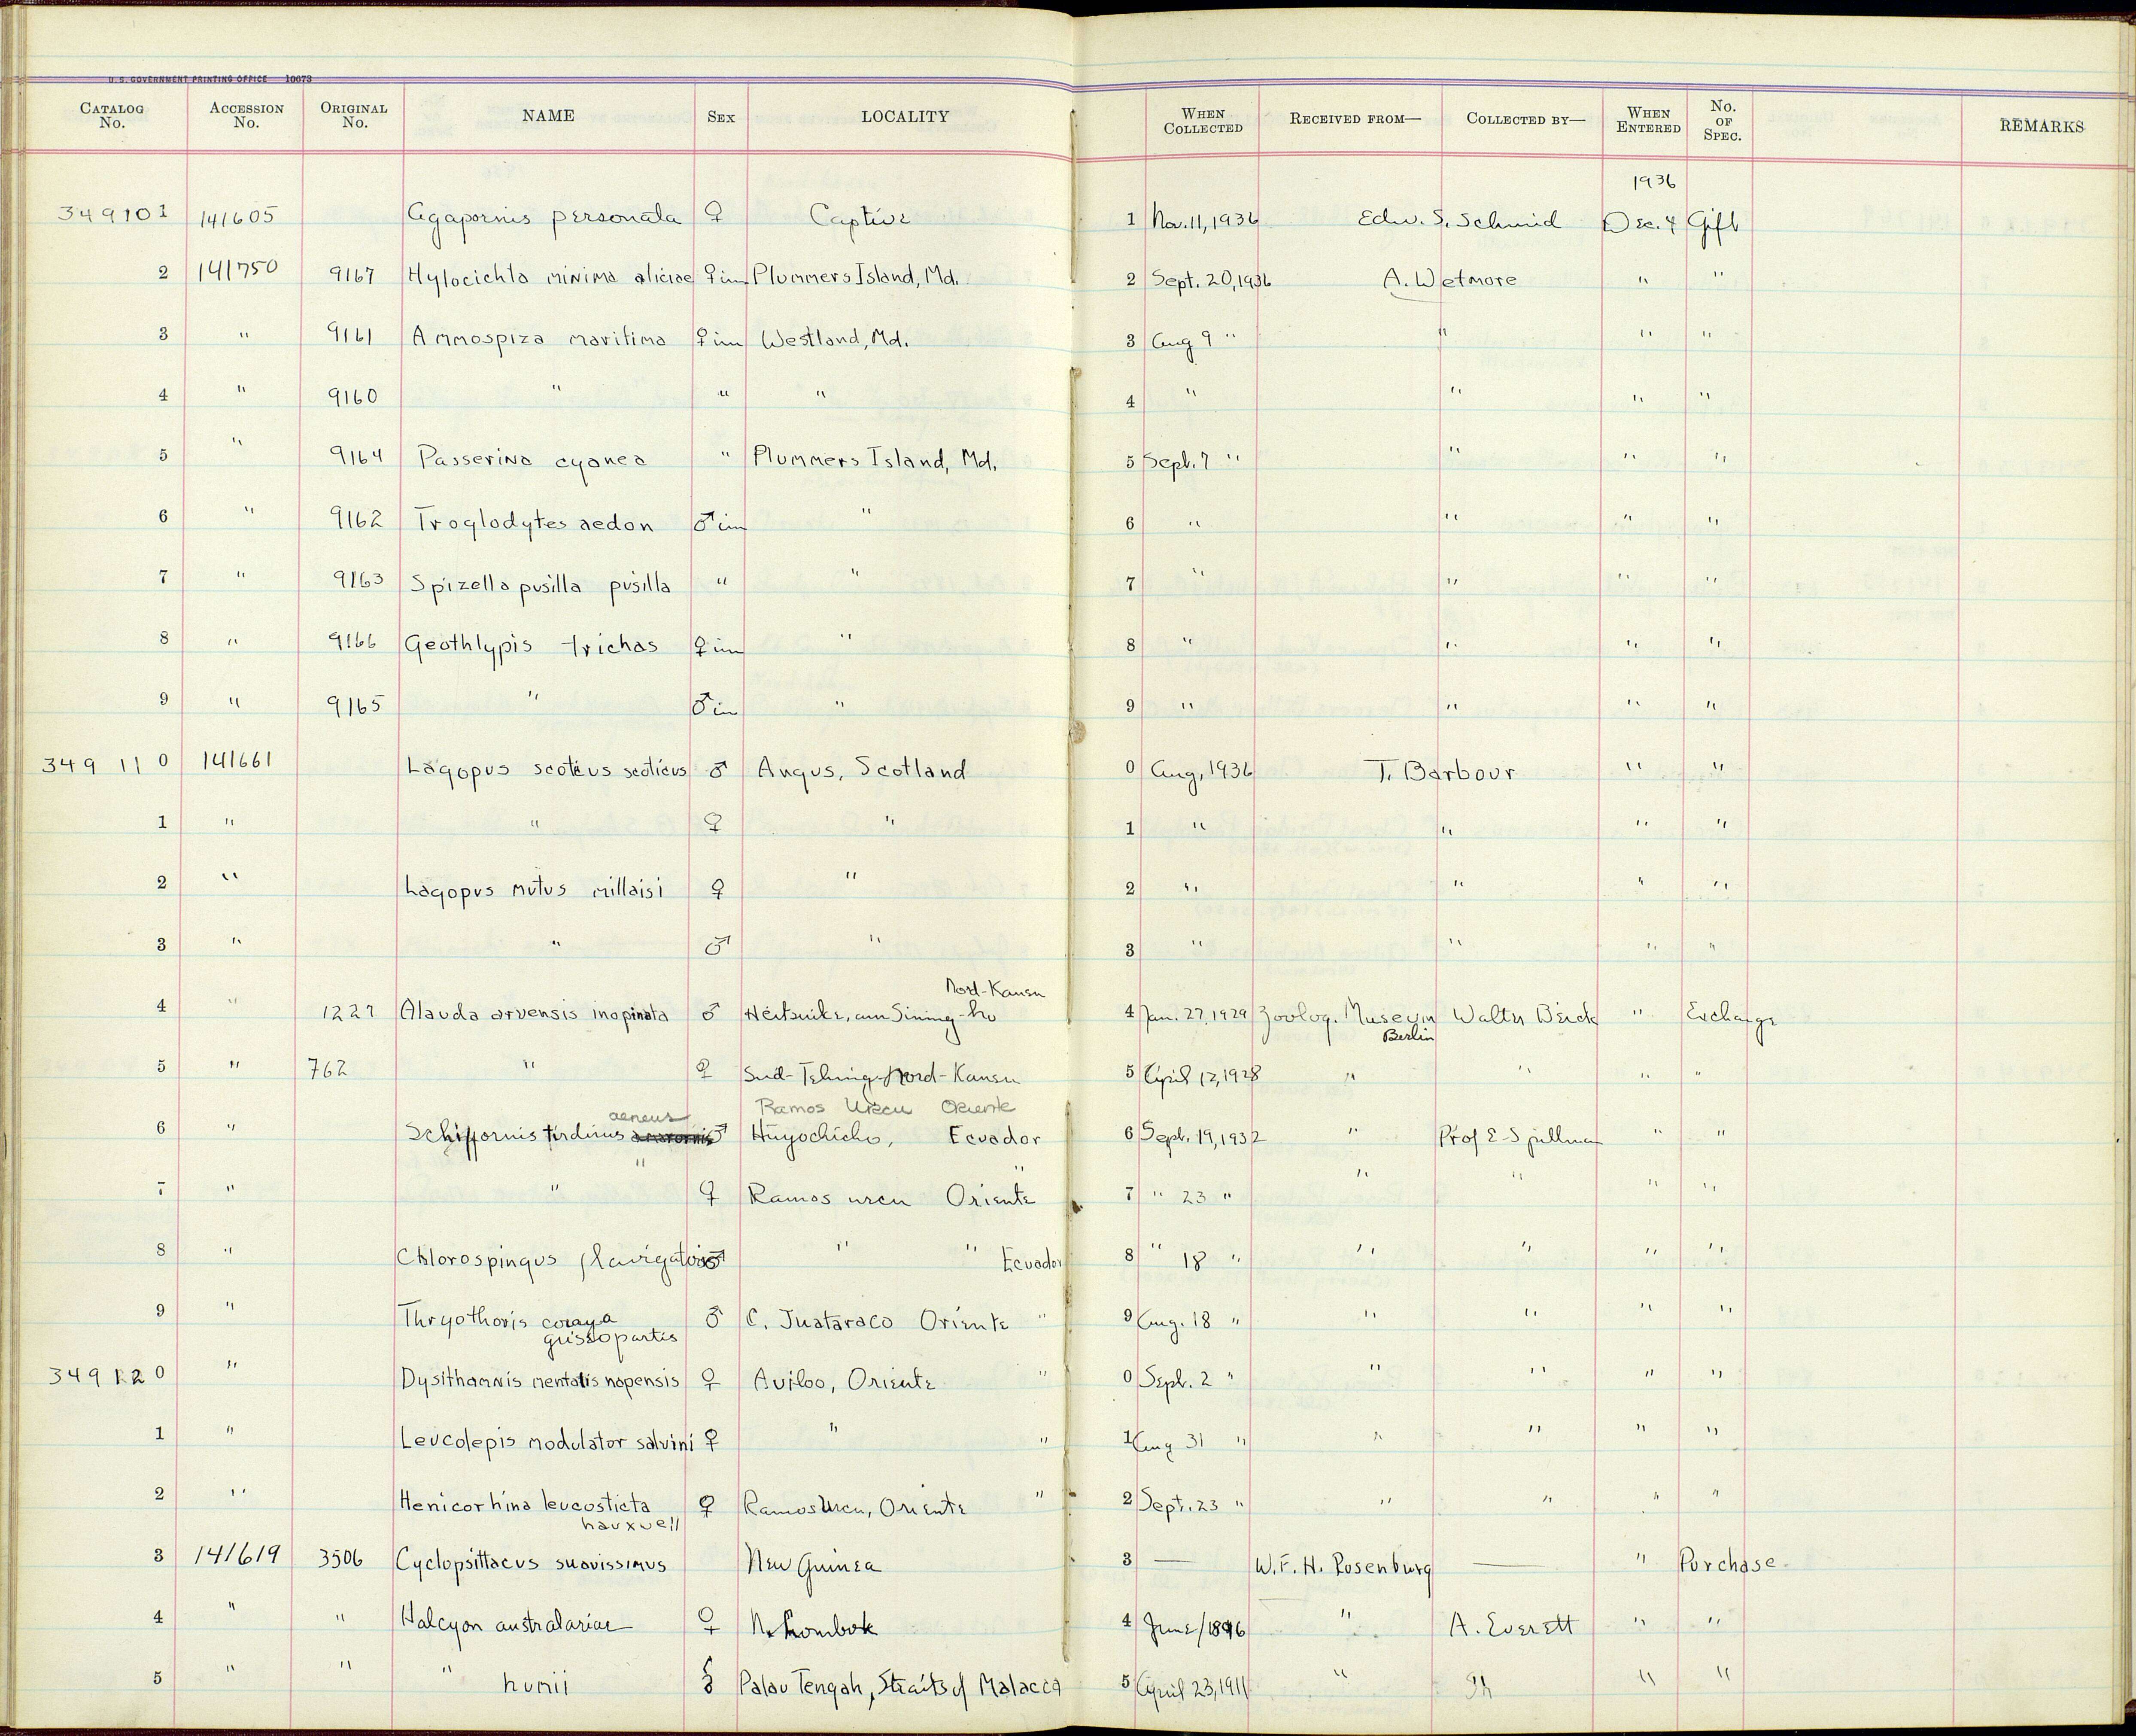 U. S. GOVERNMENT PRINTING OFFICE 10673
CATALOG No. ACCESSION No. ORIGINAL No. NAME SEX LOCALITY WHEN COLLECTED RECEIVED FROM— COLLECTED BY— WHEN ENTERED No. OF SPEC. REMARKS
1936
349101 141605 Agapornis personata ♀ Captive 1 Nov. 11, 1936 Edw. S. Schmid Dec. 4 Gift
2 141750 9167 Hylocichla minima aliciae ♀ im Plummers Island, Md. 2 Sept. 20, 1936 A. Wetmore " "
3 " 9161 Ammospiza maritima ♀ im Westland, Md. 3 Aug 9 " " " "
4 " 9160 " " " 4 " " " "
5 " 9164 Passerina cyanea " Plummers Island, Md. 5 Sept. 7 " " " "
6 " 9162 Troglodytes aedon ♂ im " 6 " " " "
7 " 9163 Spizella pusilla pusilla " " 7 " " " "
8 " 9166 Geothlypis trichas ♀ im " 8 " " " "
9 " 9165 " ♂ im " 9 " " " "
349110 141661 Lagopus scoticus scoticus ♂ Angus, Scotland 0 Aug, 1936 T. Barbour " "
1 " " ♀ " 1 " " " "
2 " Lagopus mutus millaisi ♀ " 2 " " " "
3 " " ♂ " 3 " " " "
Nord-Kansu
4 " 1227 Alauda arvensis inopinata ♂ am Sining-ho 4 Jan. 27, 1929 Zoolog. Museum Walter Beick " Exchange
Berlin
5 " 762 " ♀ Nord-Kansu 5 April 12, 1928 " " " "
aeneus Ramos Urcu Oriente
6 " Schiffornis turdinus ♂ Ecuador 6 Sept. 19, 1932 " " "
" "
7 " " ♀ Ramos urcu Oriente 7 " 23 " " " " "
8 " Chlorospingus ♂ " " 8 " 18 " " " " "
Ecuador
9 " Thryothoris coraya ♂ C. Juataraco Oriente " 9 Aug. 18 " " " " "
349120 " Dysithamnis mentalis napensis ♀ Oriente " 0 Sept. 2 " " " " "
1 " Leucolepis modulator salvini ♀ " " 1 Aug 31 " " " " "
2 " Henicorhina leucosticta ♀ Ramos Urcu, Oriente " 2 Sept. 23 " " " " "
hauxwell
3 141619 3506 Cyclopsittacus suavissimus New Guinea 3 — W. F. H. Rosenburg — " Purchase
4 " " Halcyon ♀ N. Lombok 4 June/1896 " A. Everett " "
5 " " " humii Palau Tengah, Straits of Malacca 5 April 23, 1911 " " "